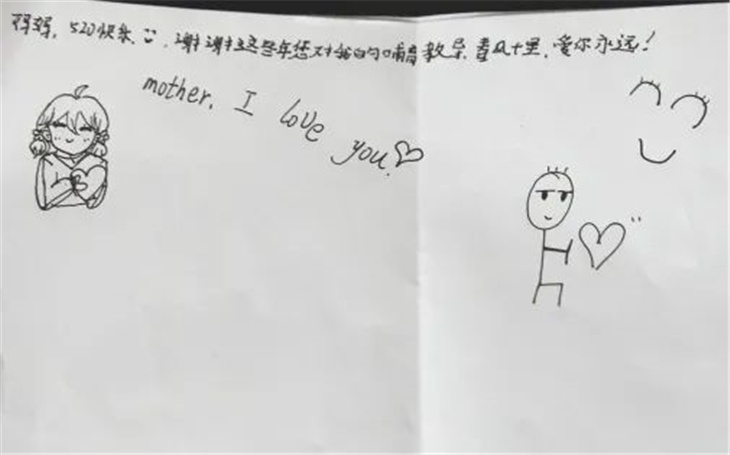 妈妈，520快乐。谢谢这些年您对我的哺育教导，春风十里，爱你永远！
mother, I love you.